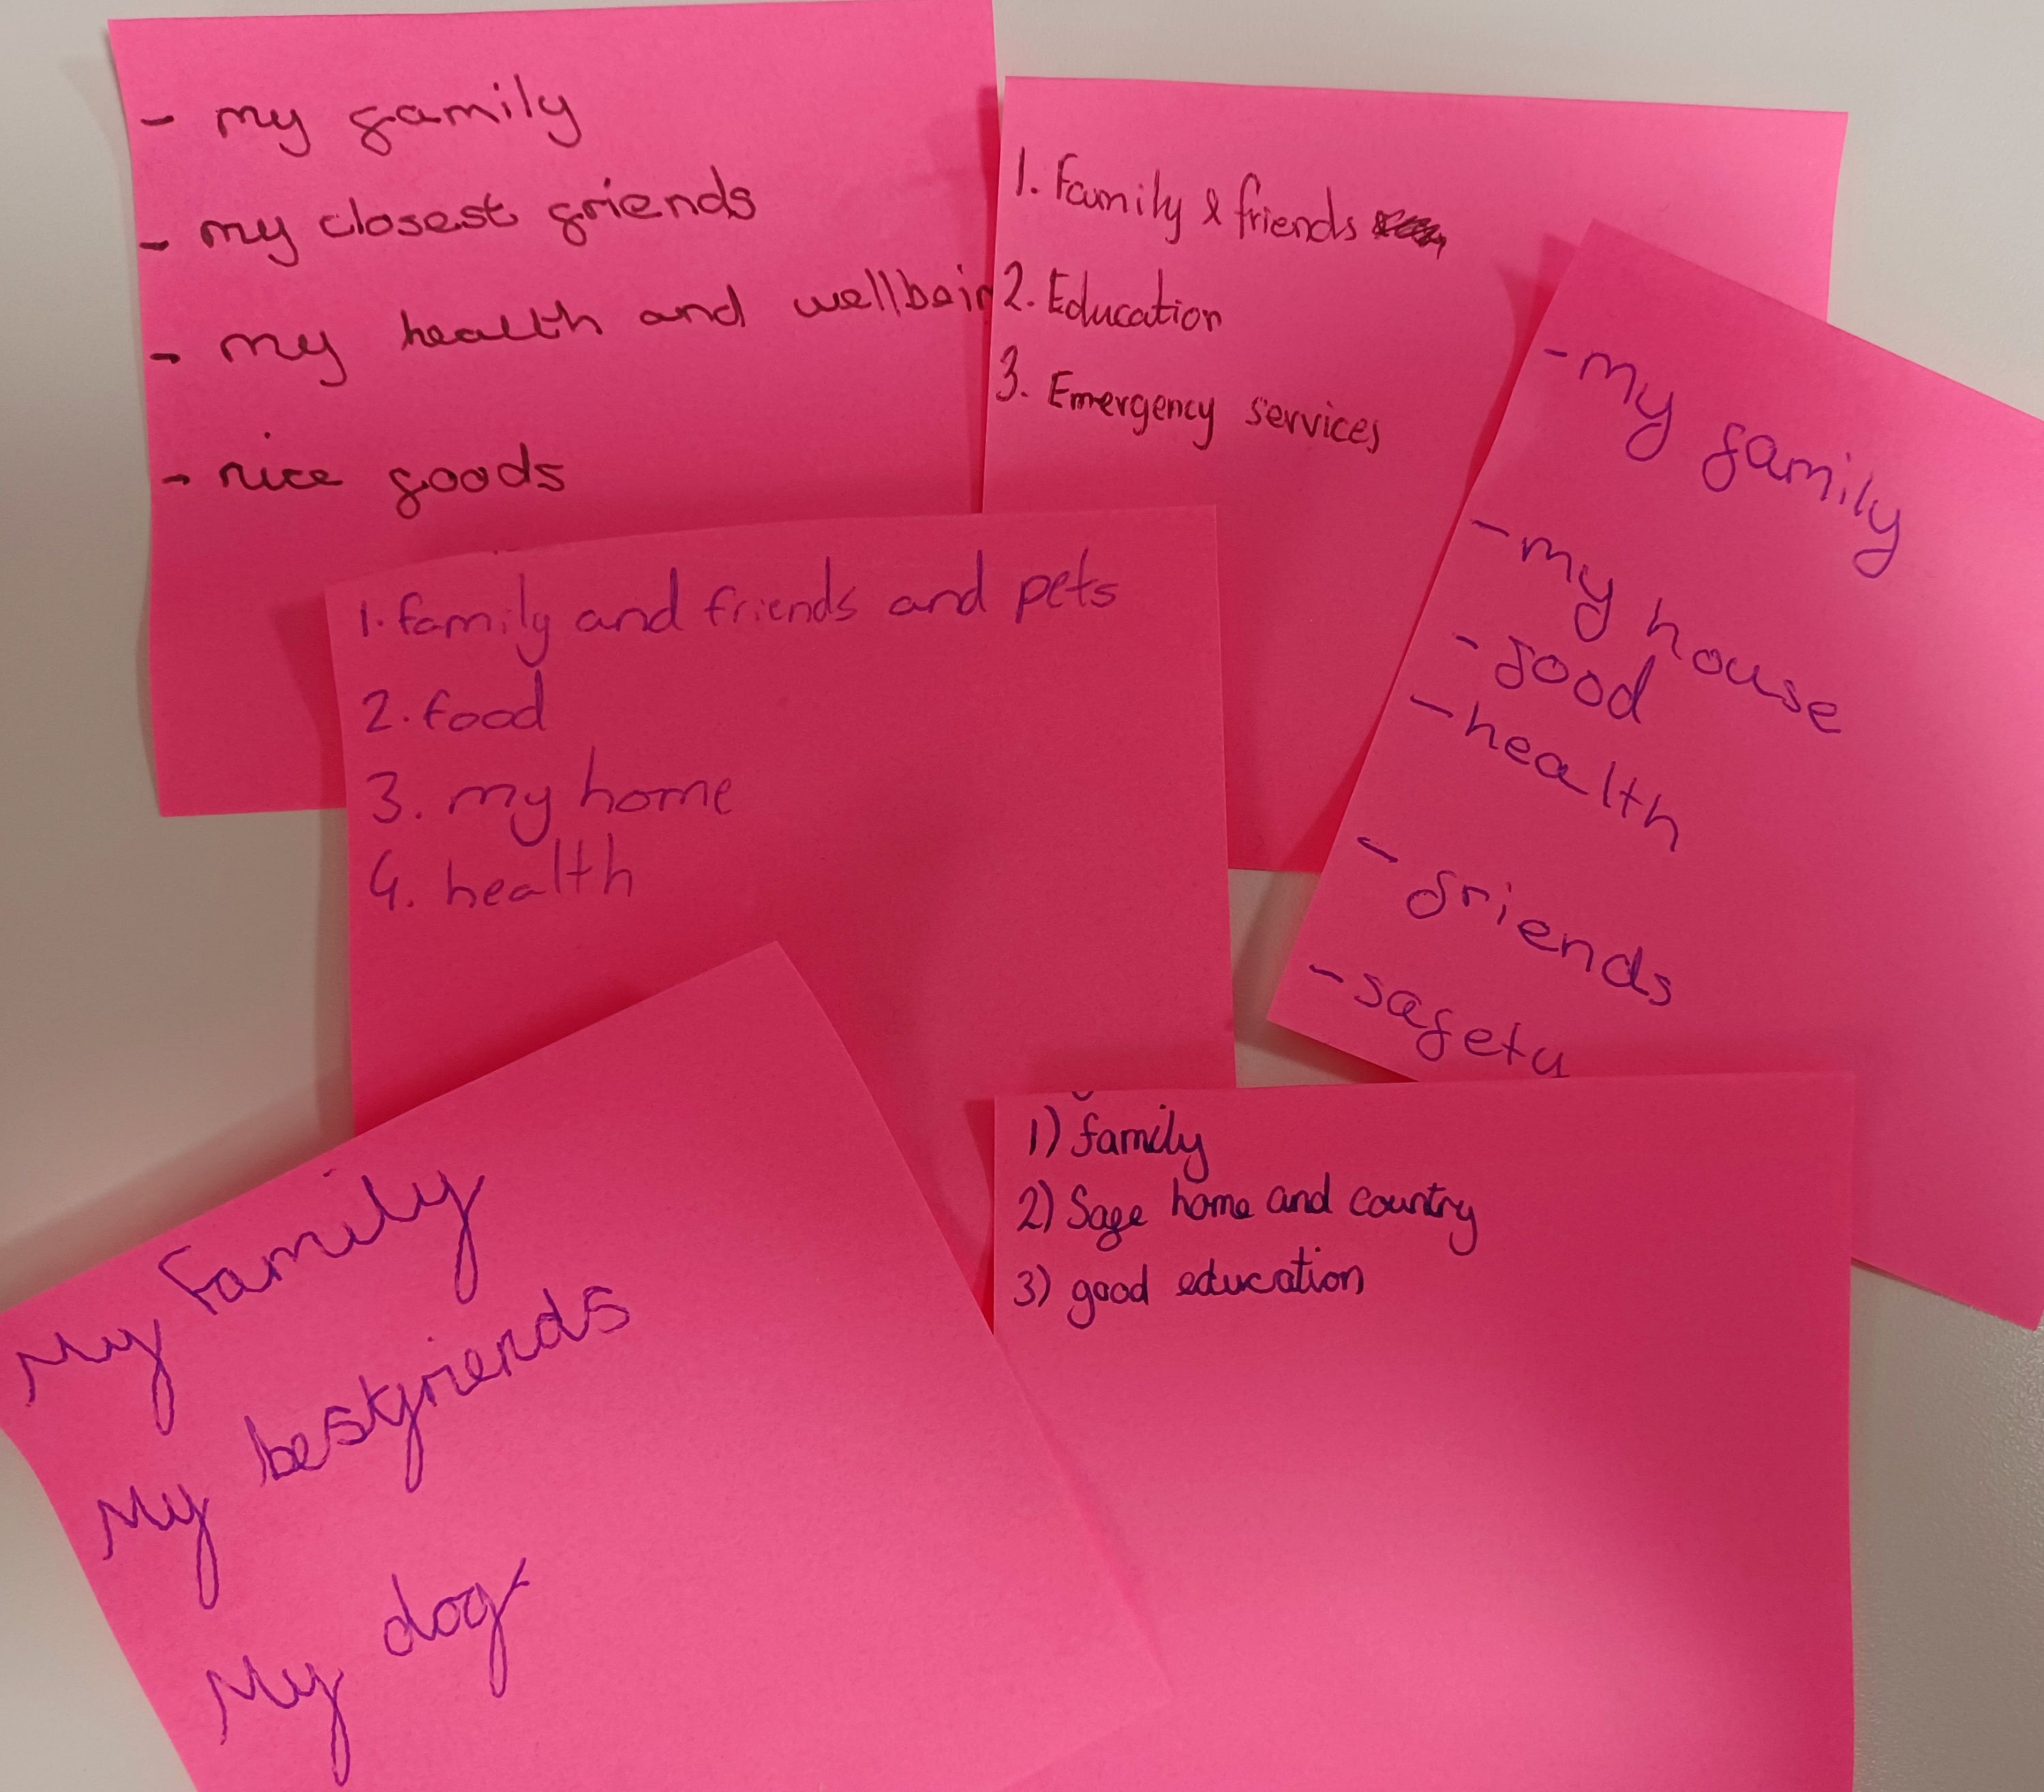 - my family
- my closest friends
- my health and wellbein
- nice foods
1. Family & friends
2. Education
3. Emergency services
- my family
- my house
- food
- health
- friends
- safety
1. family and friends and pets
2. food
3. my home
4. health
My Family
My bestfriends
My dog
1) family
2) Safe home and country
3) good education